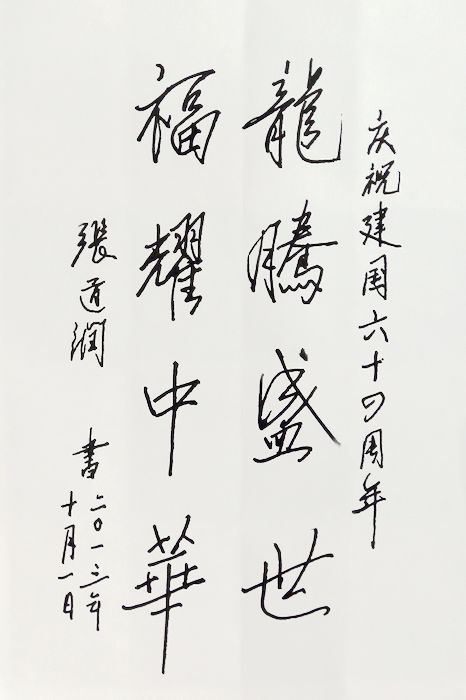 庆祝建国六十四周年
龍騰盛世
福耀中華
張道润 書
二〇一三年
十月一日